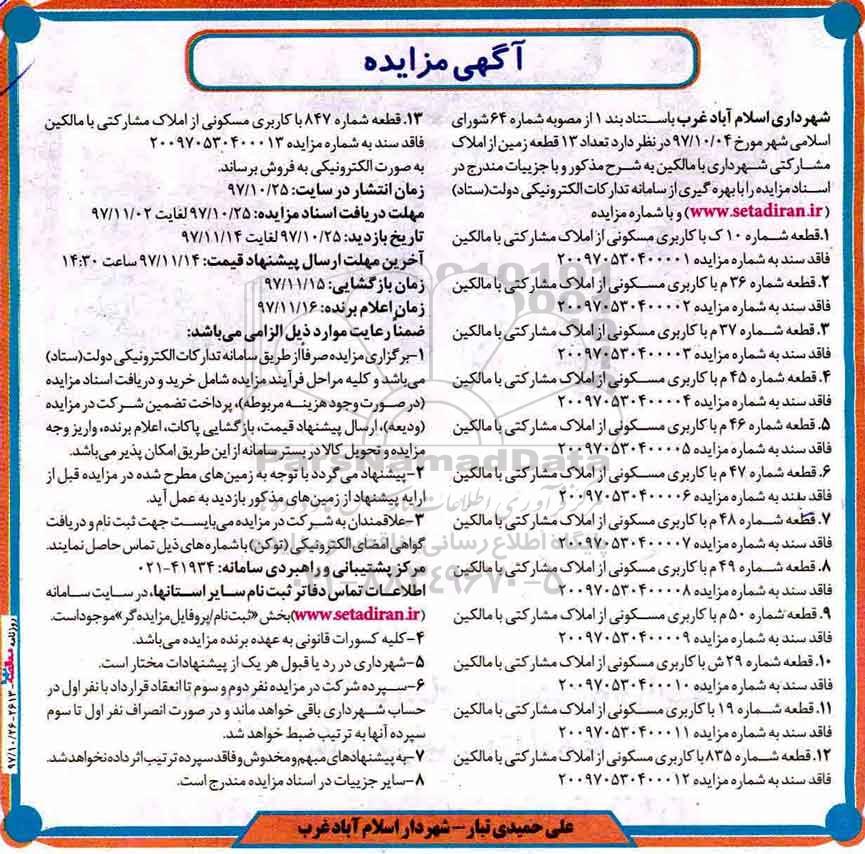 آگهی مزایده
شهرداری اسلام آباد غرب باستناد بند ۱ از مصوبه شماره ۶۴ شورای
اسلامی شهر مورخ ۹۷/۱۰/۰۴ در نظر دارد تعداد ۱۳ قطعه زمین از املاک
مشارکتی شهرداری با مالکین به شرح مذکور و با جزییات مندرج در
اسناد مزایده را با بهره گیری از سامانه تدارکات الکترونیکی دولت(ستاد)
(www.setadiran.ir) و با شماره مزایده
۱.قطعه شماره ۱۰ ک با کاربری مسکونی از املاک مشارکتی با مالکین
فاقد سند به شماره مزایده ۲۰۰۹۷۰۵۳۰۴۰۰۰۰۱
۲. قطعه شماره ۳۶ م با کاربری مسکونی از املاک مشارکتی با مالکین
فاقد سند به شماره مزایده ۲۰۰۹۷۰۵۳۰۴۰۰۰۰۲
۳. قطعه شماره ۳۷ م با کاربری مسکونی از املاک مشارکتی با مالکین
فاقد سند به شماره مزایده ۲۰۰۹۷۰۵۳۰۴۰۰۰۰۳
۴. قطعه شماره ۴۵ م با کاربری مسکونی از املاک مشارکتی با مالکین
فاقد سند به شماره مزایده ۲۰۰۹۷۰۵۳۰۴۰۰۰۰۴
۵. قطعه شماره ۴۶ م با کاربری مسکونی از املاک مشارکتی با مالکین
فاقد سند به شماره مزایده ۲۰۰۹۷۰۵۳۰۴۰۰۰۰۵
۶. قطعه شماره ۴۷ م با کاربری مسکونی از املاک مشارکتی با مالکین
فاقد سند به شماره مزایده ۲۰۰۹۷۰۵۳۰۴۰۰۰۰۶
۷. قطعه شماره ۴۸ م با کاربری مسکونی از املاک مشارکتی با مالکین
فاقد سند به شماره مزایده ۲۰۰۹۷۰۵۳۰۴۰۰۰۰۷
۸. قطعه شماره ۴۹ م با کاربری مسکونی از املاک مشارکتی با مالکین
فاقد سند به شماره مزایده ۲۰۰۹۷۰۵۳۰۴۰۰۰۰۸
۹. قطعه شماره ۵۰ م با کاربری مسکونی از املاک مشارکتی با مالکین
فاقد سند به شماره مزایده ۲۰۰۹۷۰۵۳۰۴۰۰۰۰۹
۱۰. قطعه شماره ۲۹ ش با کاربری مسکونی از املاک مشارکتی با مالکین
فاقد سند به شماره مزایده ۲۰۰۹۷۰۵۳۰۴۰۰۰۱۰
۱۱. قطعه شماره ۱۹ با کاربری مسکونی از املاک مشارکتی با مالکین
فاقد سند به شماره مزایده ۲۰۰۹۷۰۵۳۰۴۰۰۰۱۱
۱۲. قطعه شماره ۸۳۵ با کاربری مسکونی از املاک مشارکتی با مالکین
فاقد سند به شماره مزایده ۲۰۰۹۷۰۵۳۰۴۰۰۰۱۲
۱۳. قطعه شماره ۸۴۷ با کاربری مسکونی از املاک مشارکتی با مالکین
فاقد سند به شماره مزایده ۲۰۰۹۷۰۵۳۰۴۰۰۰۱۳
به صورت الکترونیکی به فروش برساند.
زمان انتشار در سایت: ۹۷/۱۰/۲۵
مهلت دریافت اسناد مزایده: ۹۷/۱۰/۲۵ لغایت ۹۷/۱۱/۰۲
تاریخ بازدید: ۹۷/۱۰/۲۵ لغایت ۹۷/۱۱/۱۴
آخرین مهلت ارسال پیشنهاد قیمت: ۹۷/۱۱/۱۴ ساعت ۱۴:۳۰
زمان بازگشایی: ۹۷/۱۱/۱۵
زمان اعلام برنده: ۹۷/۱۱/۱۶
ضمناً رعایت موارد ذیل الزامی می‌باشد:
۱-برگزاری مزایده صرفا از طریق سامانه تدارکات الکترونیکی دولت(ستاد)
می‌باشد و کلیه مراحل فرآیند مزایده شامل خرید و دریافت اسناد مزایده
(در صورت وجود هزینه مربوطه)، پرداخت تضمین شرکت در مزایده
(ودیعه)، ارسال پیشنهاد قیمت، بازگشایی پاکات، اعلام برنده، واریز وجه
مزایده و تحویل کالا در بستر سامانه از این طریق امکان پذیر می‌باشد.
۲-پیشنهاد می‌گردد با توجه به زمین‌های مطرح شده در مزایده قبل از
ارایه پیشنهاد از زمین‌های مذکور بازدید به عمل آید.
۳-علاقمندان به شرکت در مزایده می‌بایست جهت ثبت نام و دریافت
گواهی امضای الکترونیکی (توکن) با شماره‌های ذیل تماس حاصل نمایند.
مرکز پشتیبانی و راهبردی سامانه: ۴۱۹۳۴-۰۲۱
اطلاعات تماس دفاتر ثبت نام سایر استانها، در سایت سامانه
(www.setadiran.ir)بخش «ثبت‌نام/پروفایل مزایده‌گر» موجود است.
۴-کلیه کسورات قانونی به عهده برنده مزایده می‌باشد.
۵-شهرداری در رد یا قبول هر یک از پیشنهادات مختار است.
۶-سپرده شرکت در مزایده نفر دوم و سوم تا انعقاد قرارداد با نفر اول در
حساب شهرداری باقی خواهد ماند و در صورت انصراف نفر اول تا سوم
سپرده آنها به ترتیب ضبط خواهد شد.
۷-به پیشنهادهای مبهم و مخدوش و فاقد سپرده ترتیب اثر داده نخواهد شد.
۸-سایر جزییات در اسناد مزایده مندرج است.
علی حمیدی تبار – شهردار اسلام آباد غرب
ParsNamadData
۰۲۱-۸۸۳۴۹۶۷۰-۵
روزنامه ۲۶۱۳-۹۷/۱۰/۲۶